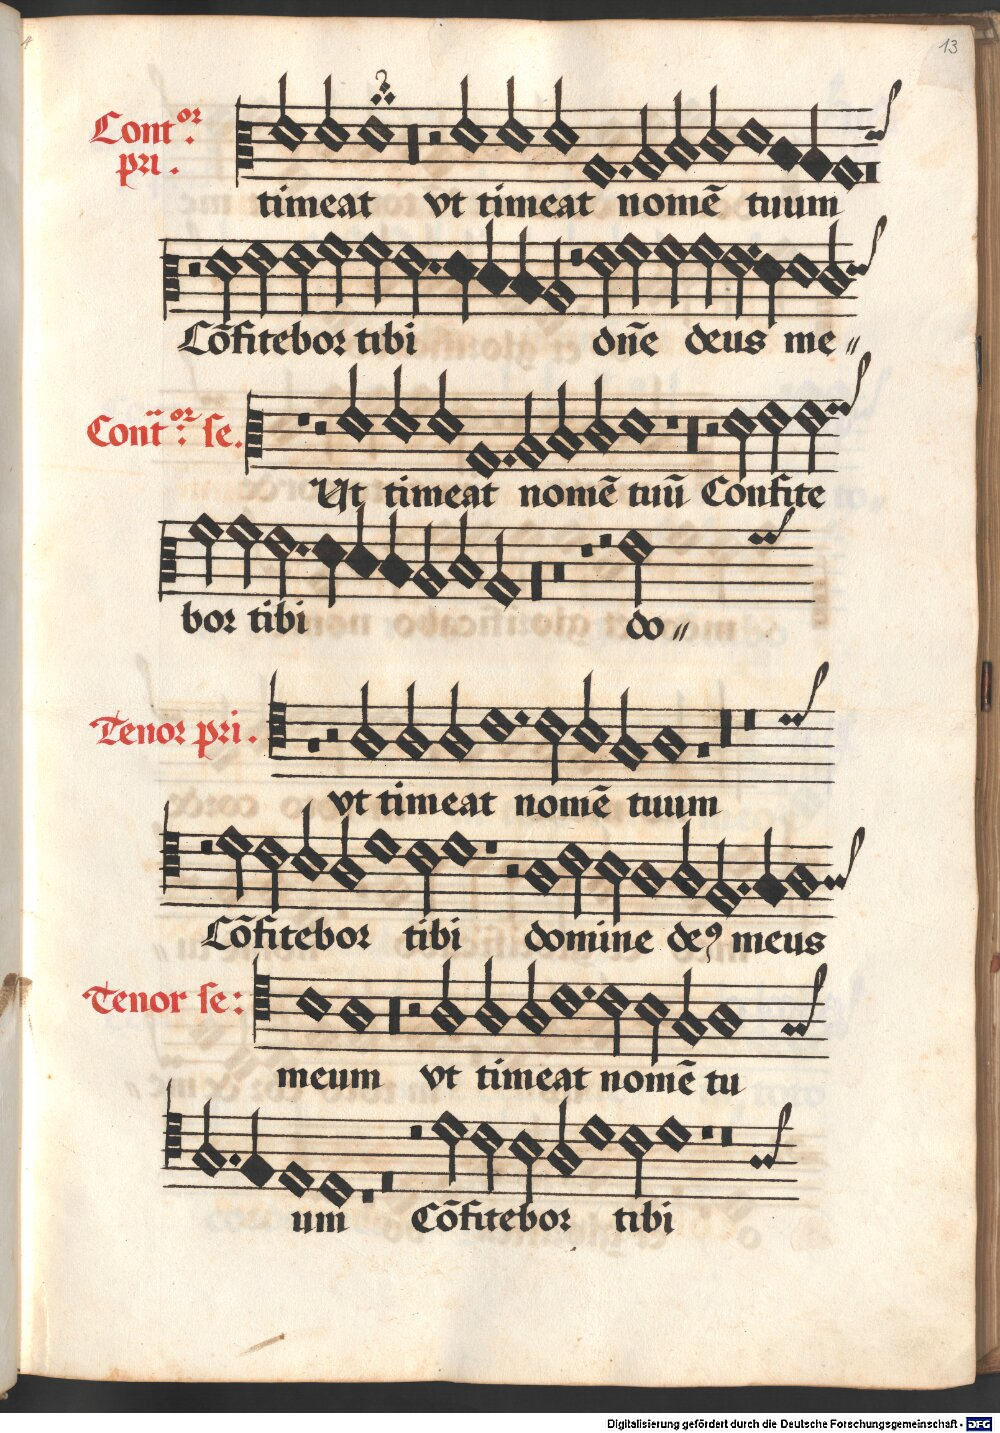 13
Contor: pri.
timeat vt timeat nomē tuum
Cōfitebor tibi dn̄e deus me〃
Contor: se.
Vt timeat nomē tuū Confite
bor tibi do〃
Tenor pri.
vt timeat nomē tuum
Cōfitebor tibi domine deꝰ meus
Tenor se:
meum vt timeat nomē tu
um Cōfitebor tibi
Digitalisierung gefördert durch die Deutsche Forschungsgemeinschaft - DFG